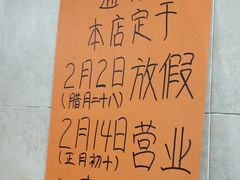 本店定于
2月2日放假
(腊月二十八)
2月14日营业
(正月初十)